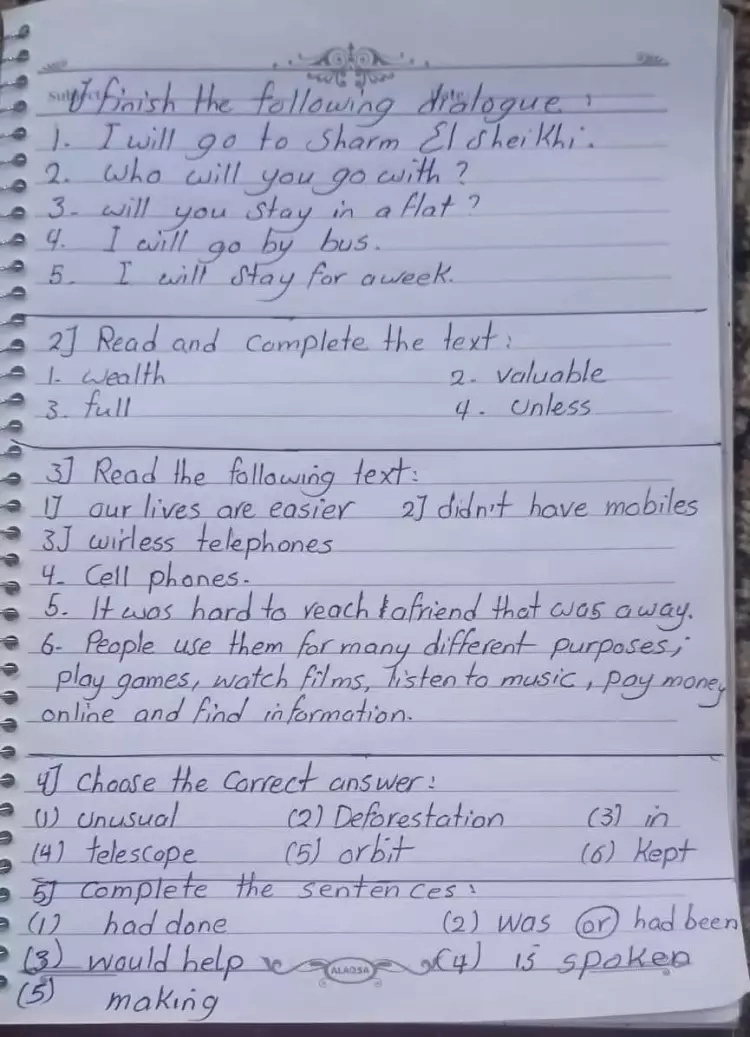 1] finish the following dialogue :
1. I will go to Sharm El sheikhi.
2. who will you go with ?
3- will you stay in a flat ?
4. I will go by bus.
5. I will stay for aweek.
2] Read and complete the text :
1. wealth 2. valuable
3. full 4. Unless
3] Read the following text:
1] our lives are easier 2] didn't have mobiles
3] wirless telephones
4- Cell phones.
5. It was hard to reach afriend that was away.
6- People use them for many different purposes;
play games, watch films, listen to music, pay money
online and find information.
4] Choose the correct answer :
(1) unusual (2) Deforestation (3) in
(4) telescope (5) orbit (6) Kept
5] complete the sentences :
(1) had done (2) was or had been
(3) would help (4) is spoken
ALAQSA
(5) making